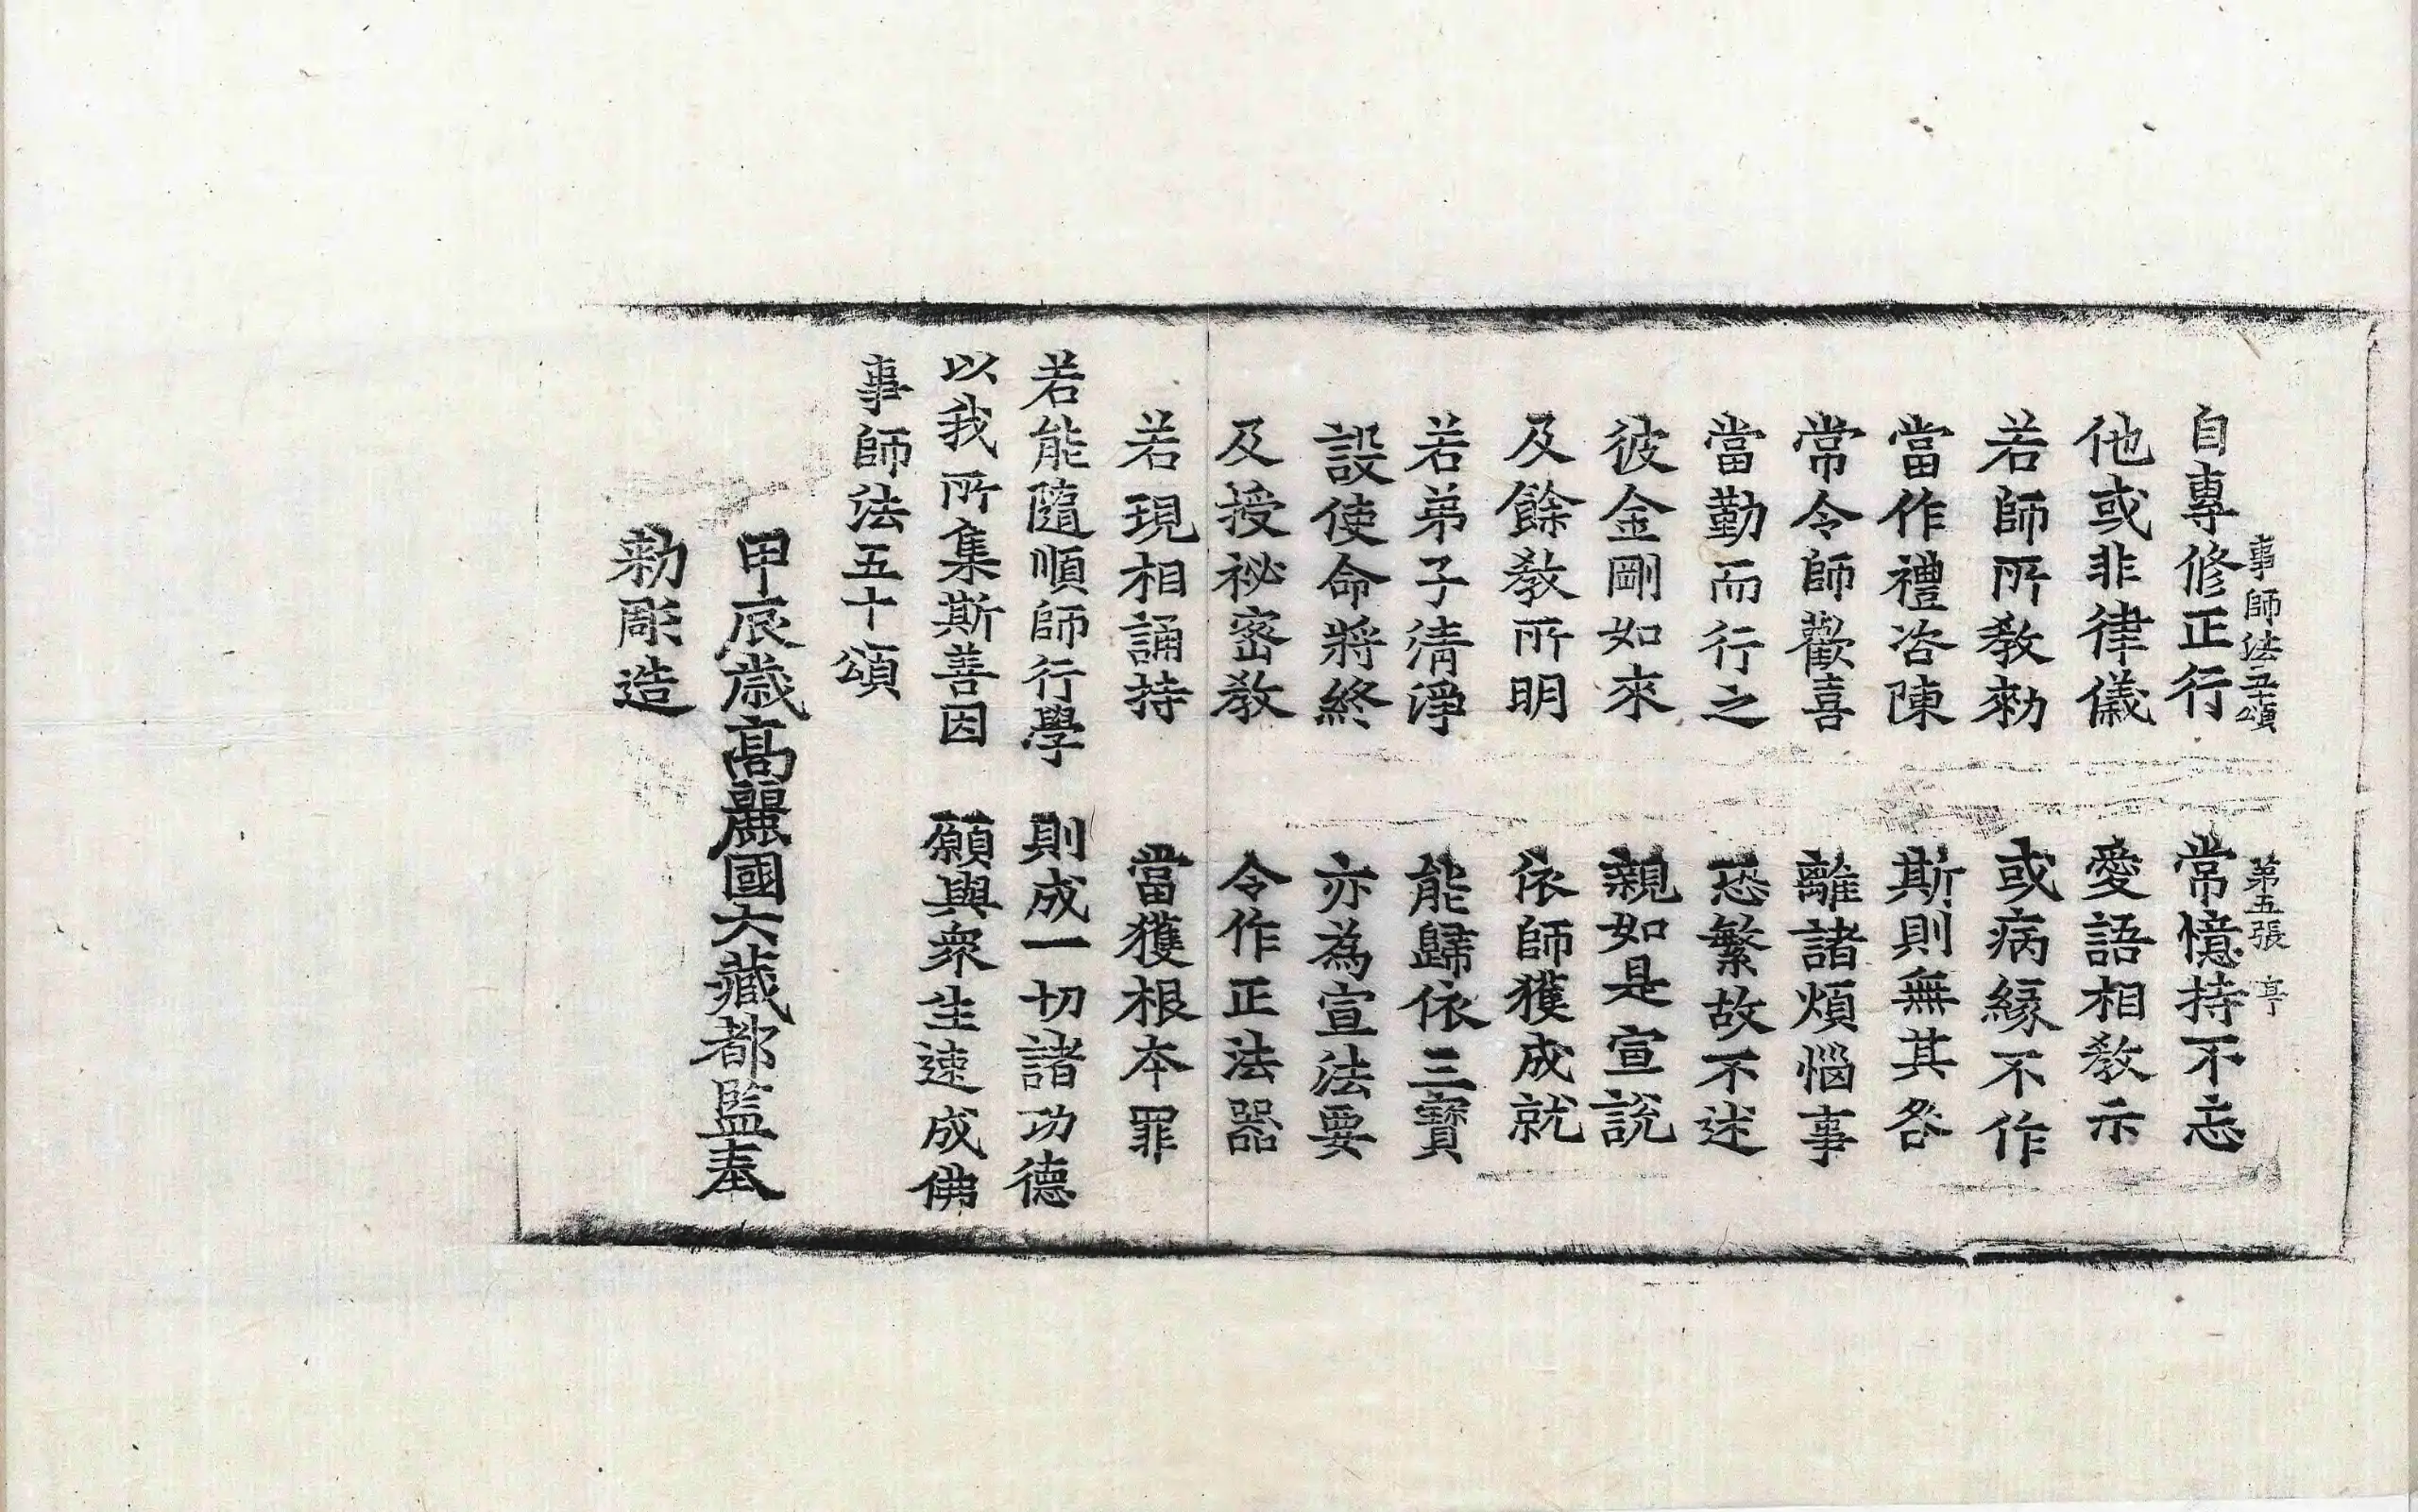 事師法五十頌 第五張 亭
自專修正行 常憶持不忘
他或非律儀 愛語相教示
若師所教勑 或病緣不作
當作禮咨陳 斯則無其咎
常令師歡喜 離諸煩惱事
當勤而行之 恐繁故不述
彼金剛如來 親如是宣說
及餘教所明 依師獲成就
若弟子清淨 能歸依三寶
設使命將終 亦為宣法要
及授祕密教 令作正法器
若現相誦持 當獲根本罪
若能隨順師行學 則成一切諸功德
以我所集斯善因 願與衆生速成佛
事師法五十頌
甲辰歲高麗國大藏都監奉
勑彫造